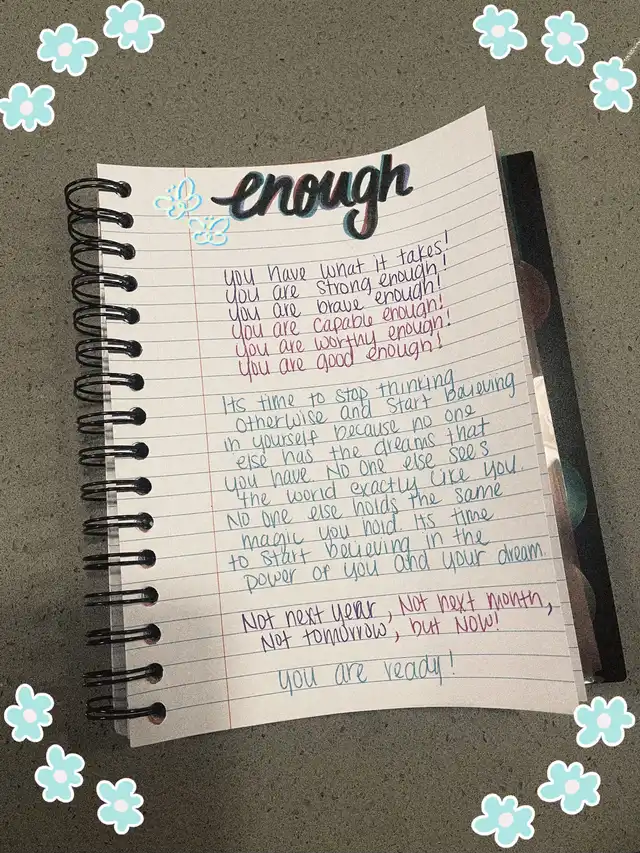 enough
you have what it takes!
you are strong enough!
you are brave enough!
you are capable enough!
you are worthy enough!
you are good enough!
Its time to stop thinking
otherwise and start believing
in yourself because no one
else has the dreams that
you have. No one else sees
the world exactly like you.
No one else holds the same
magic you hold. Its time
to start believing in the
power of you and your dream.
Not next year, Not next month,
Not tomorrow, but NOW!
you are ready!